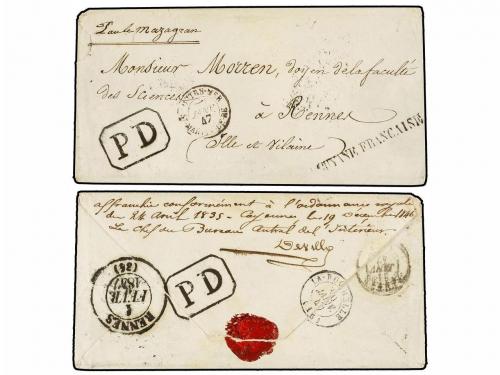 Par le Mazagran
Monsieur Morren, doyen de la faculté
des Sciences
à Rennes
(Ille et Vilaine)
PD
GUYANE FRANCAISE
affranchie conformément à l'ordonnance royale
du 24 Avril 1835 - Cayenne, le 19 Décembre 1846
Le Chef du Bureau Central de l'Intérieur.
Deville
PD
RENNES
1
FEVR
1847
(34)
LA-ROCHELLE